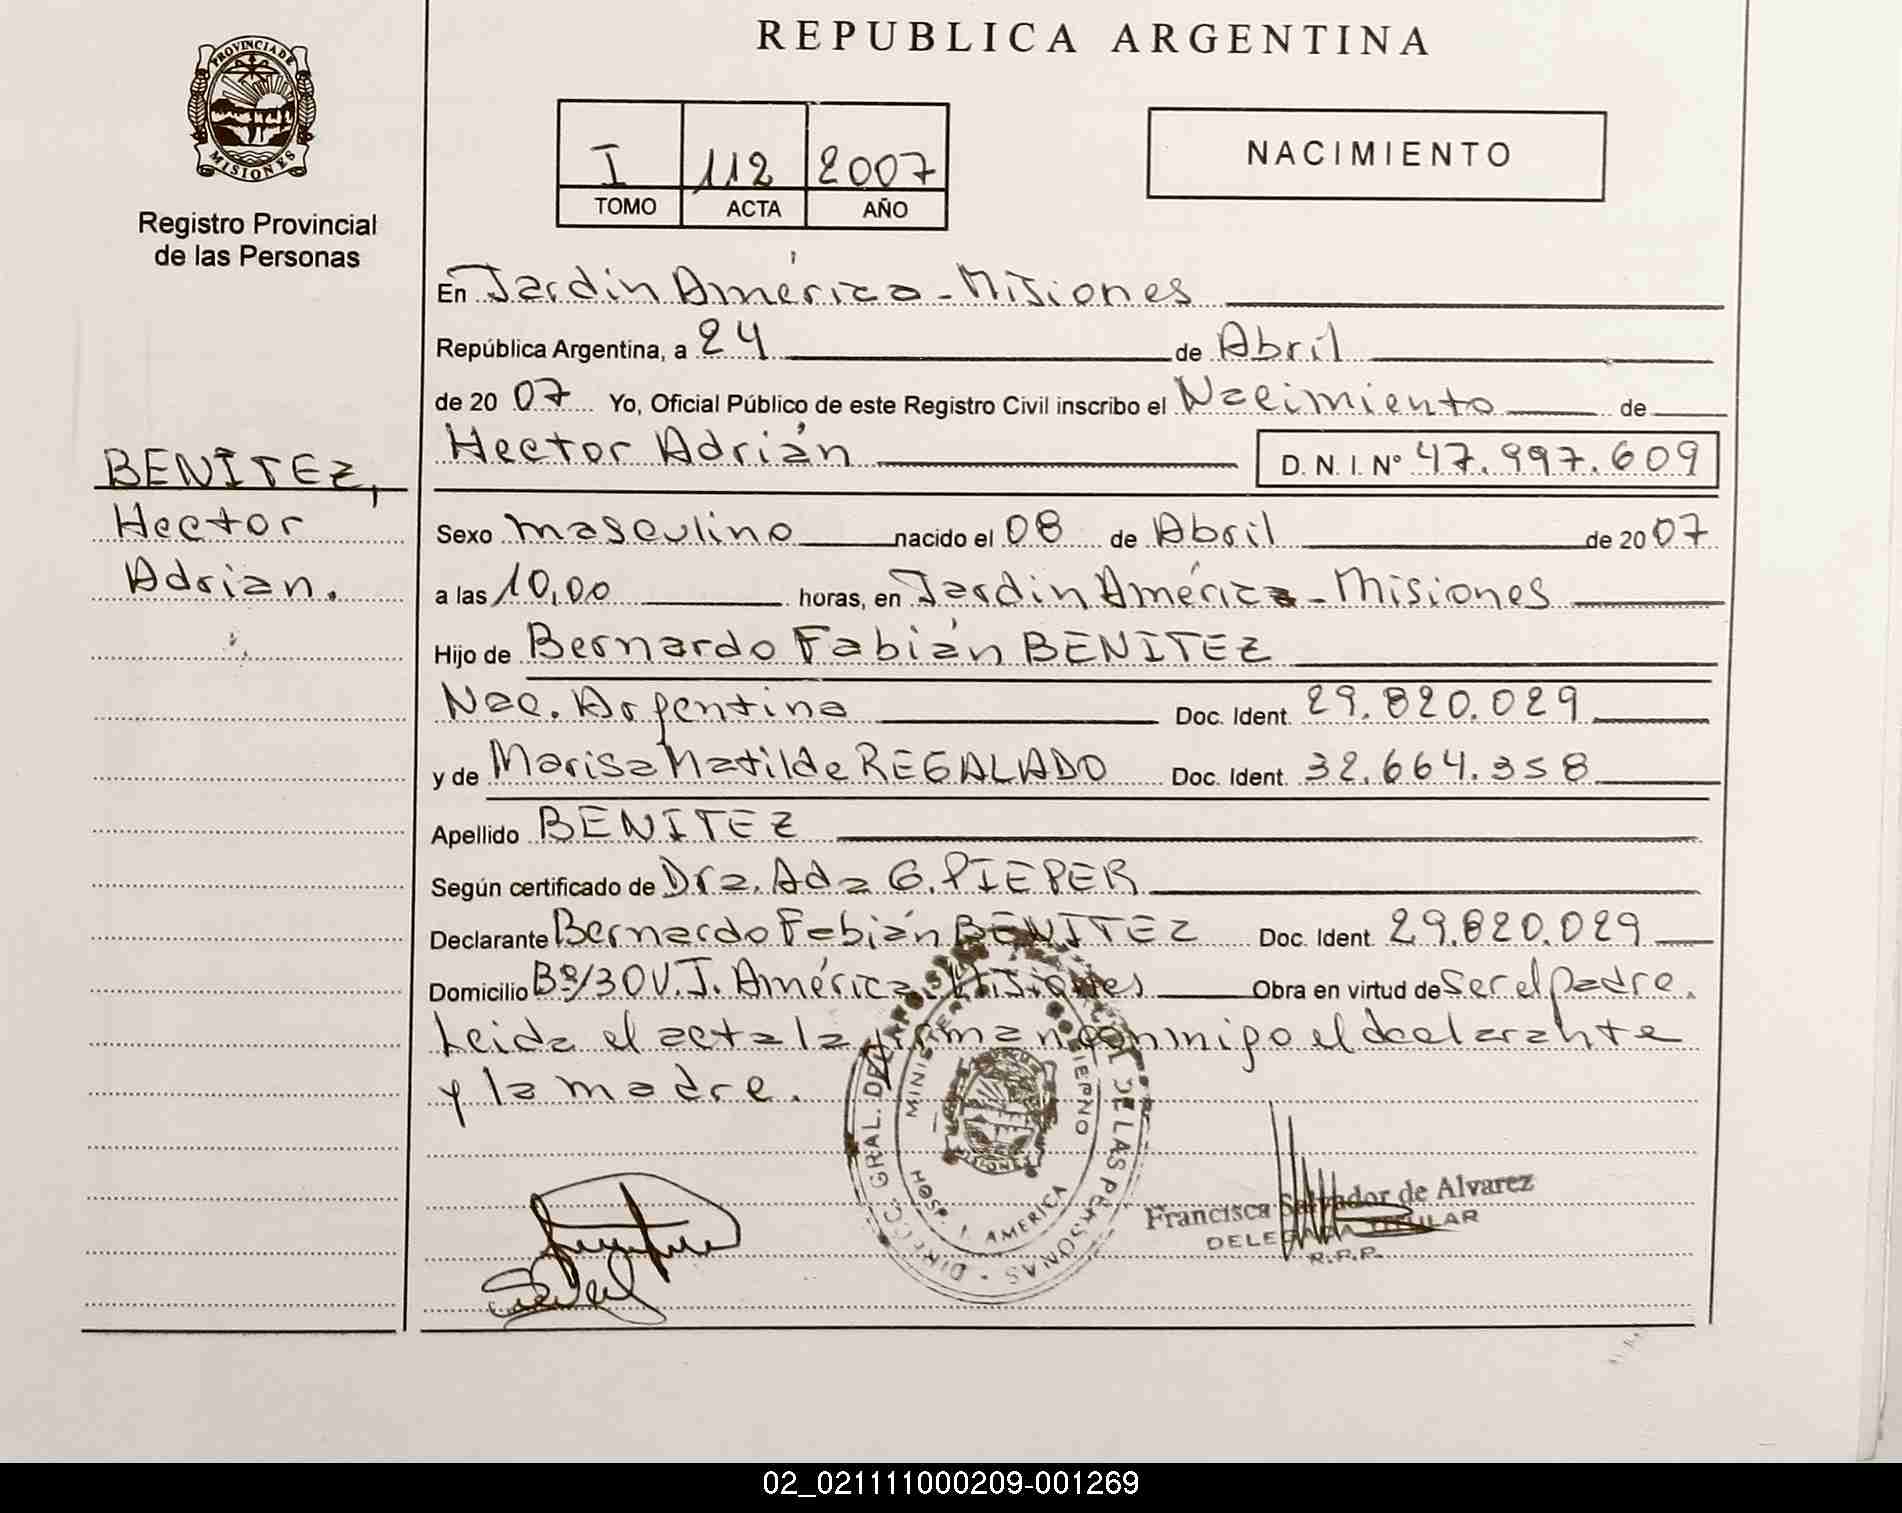 REPUBLICA ARGENTINA
PROVINCIA DE
MISIONES
Registro Provincial
de las Personas
I 112 2007
TOMO ACTA AÑO
NACIMIENTO
En Jardín América - Misiones
República Argentina, a 24 de Abril
de 20 07 Yo, Oficial Público de este Registro Civil inscribo el Nacimiento de
Hector Adrián D. N. I. Nº 47.997.609
BENITEZ,
Hector
Adrian.
Sexo masculino nacido el 08 de Abril de 20 07
a las 10,00 horas, en Jardin América - Misiones
Hijo de Bernardo Fabián BENITEZ
Nac. Argentina Doc. Ident. 29.820.029
y de Marisa Matilde REGALADO Doc. Ident. 32.664.358
Apellido BENITEZ
Según certificado de Dra. Ada G. PIEPER
Declarante Bernardo Fabián BENITEZ Doc. Ident. 29.820.029
Domicilio Bº/30 V. J. América. Misiones Obra en virtud de Ser el padre.
Leida el acta la firman conmigo el declarante
y la madre.
Francisca Salvador de Alvarez
DELEGADA TITULAR
R.P.P.
HOSP. J. AMERICA
02_021111000209-001269